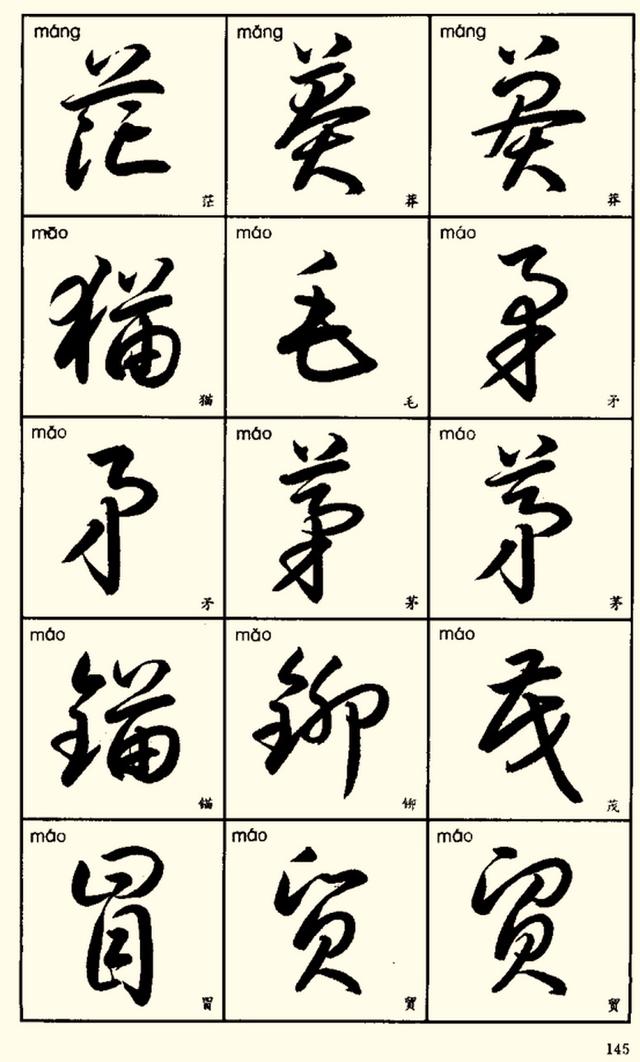 máng mǎng máng
茫 莽 莽
茫 莽 莽
māo máo máo
猫 毛 矛
猫 毛 矛
mǎo máo máo
矛 茅 茅
矛 茅 茅
máo mǎo máo
锚 铆 茂
锚 铆 茂
máo máo máo
冒 贸 贸
冒 贸 贸
145